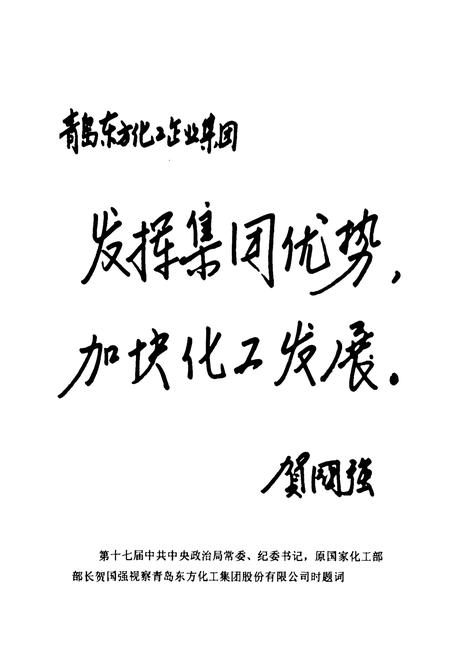 青岛东方化工企业集团
发挥集团优势，
加块化工发展。
贺国强
第十七届中共中央政治局常委、纪委书记，原国家化工部
部长贺国强视察青岛东方化工集团股份有限公司时题词